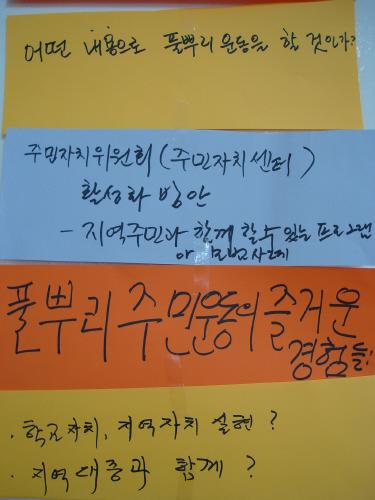 어떤 내용으로 풀뿌리 운동을 할 것인가?
주민자치위원회 (주민자치센터)
활성화 방안
- 지역주민과 함께 할 수 있는 프로그램
과 모범사례
풀뿌리 주민운동의 즐거운
경험들!
· 학교자치, 지역자치 실현?
· 지역대중과 함께?